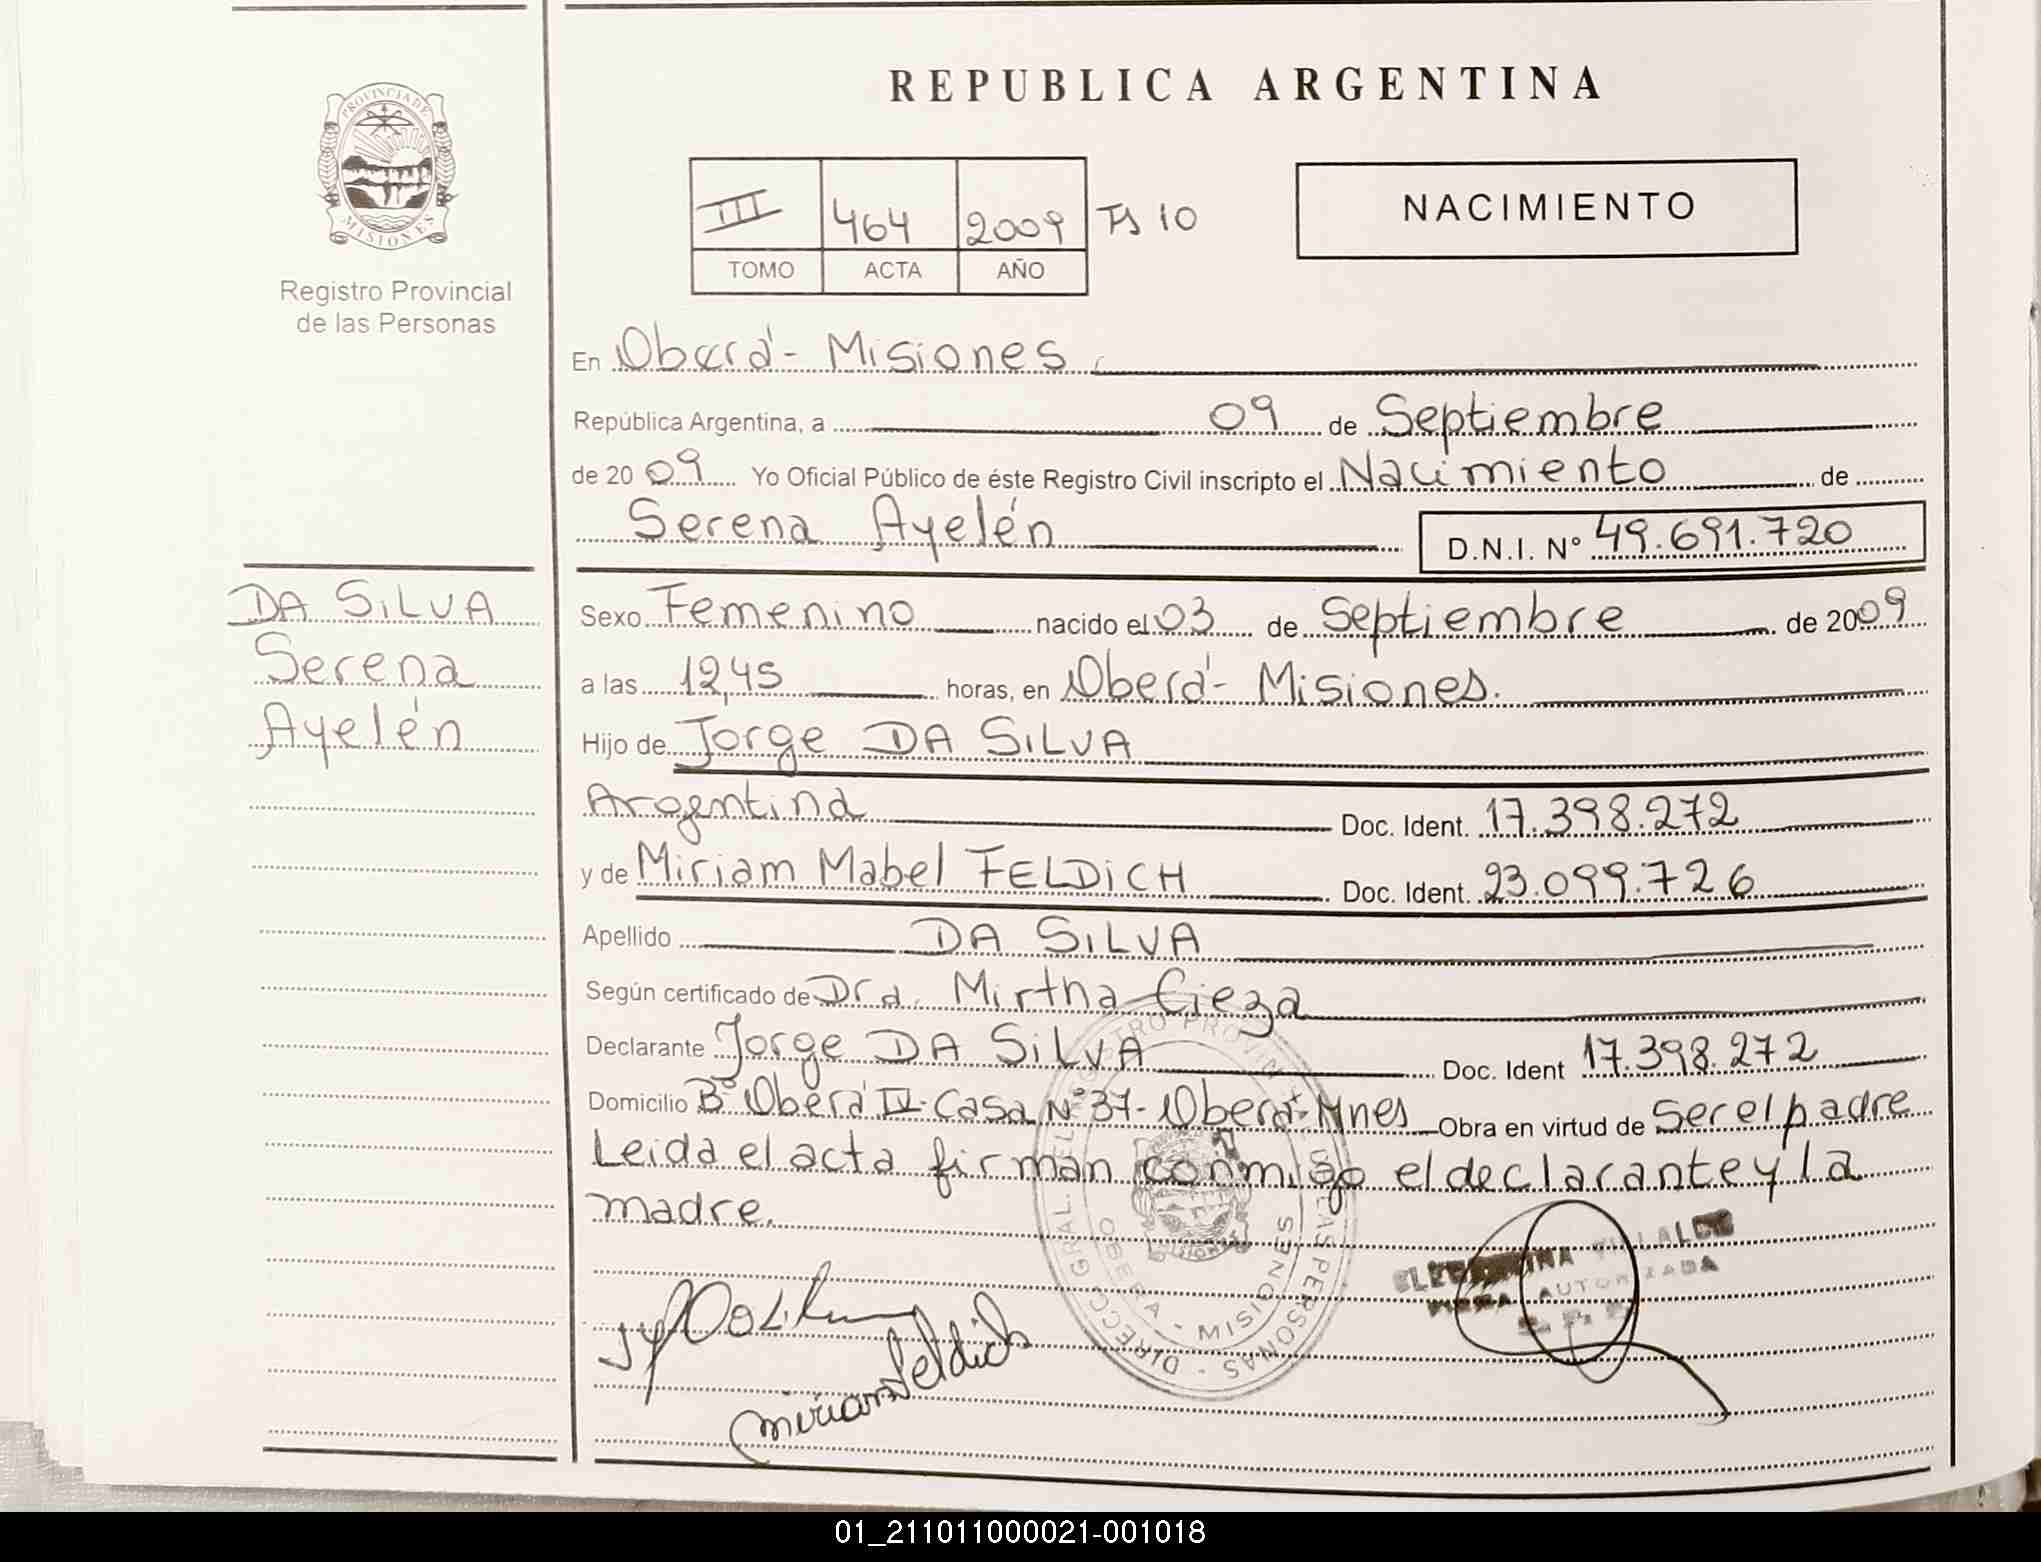 REPUBLICA ARGENTINA
PROVINCIA DE
MISIONES
Registro Provincial
de las Personas
III 464 2009 Fs 10
TOMO ACTA AÑO
NACIMIENTO
En Oberá - Misiones
República Argentina, a 09 de Septiembre
de 2009 Yo Oficial Público de éste Registro Civil inscripto el Nacimiento de
Serena Ayelén D.N.I. Nº 49.691.720
DA SILVA
Serena
Ayelén
Sexo Femenino nacido el 03 de Septiembre de 2009
a las 12,45 horas, en Oberá - Misiones.
Hijo de Jorge DA SILVA
Argentina Doc. Ident. 17.398.272
y de Miriam Mabel FELDICH Doc. Ident. 23.099.726
Apellido DA SILVA
Según certificado de Dra. Mirtha Cieza
Declarante Jorge DA SILVA Doc. Ident 17.398.272
Domicilio Bº Oberá IV - Casa Nº 37 - Oberá - Mnes Obra en virtud de Ser el padre
Leida el acta firman conmigo el declarante y la
madre.
OBERA - MISIONES
AUTORIZADA
Miriam Feldich
01_211011000021-001018